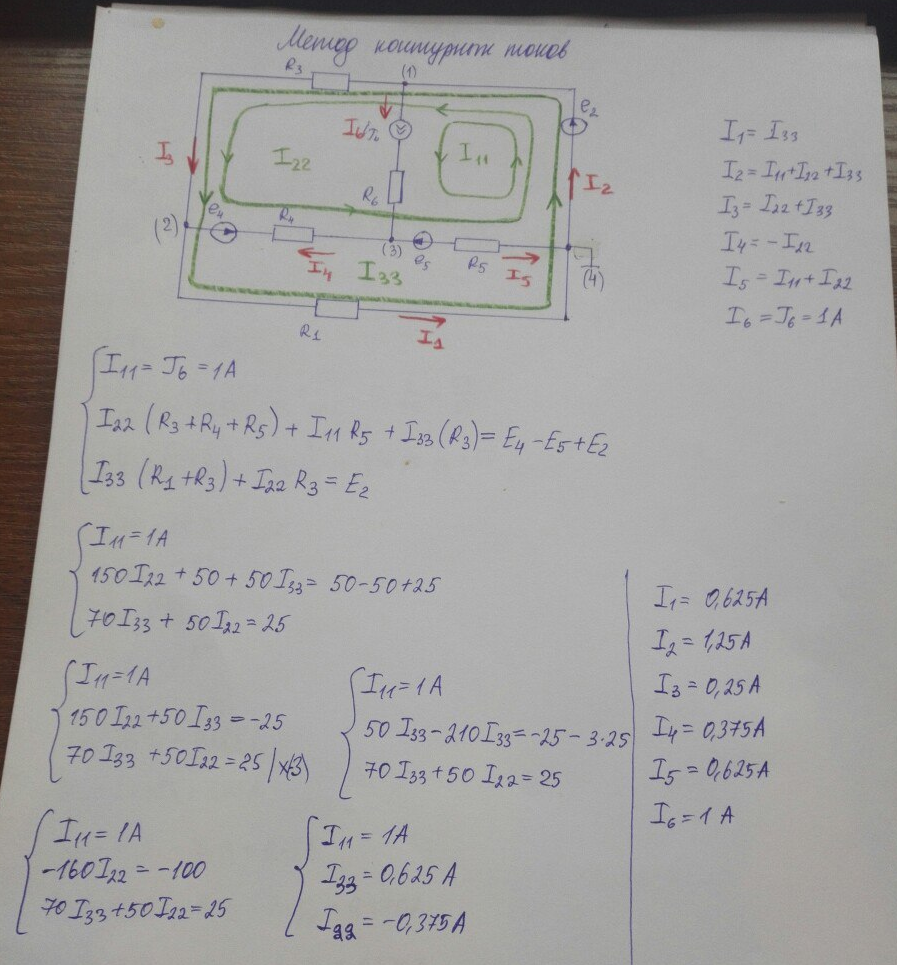 Метод контурных токов
R3
(1)
e2
I6
J6
I3
I22
I11
I2
R6
(2)
e4
R4
(3)
e5
R5
I4
I33
I5
(4)
R1
I1
I1 = I33
I2 = I11+I22+I33
I3 = I22+I33
I4 = -I22
I5 = I11+I22
I6 = J6 = 1A
I11 = J6 = 1A
I22 (R3+R4+R5) + I11 R5 + I33 (R3) = E4 - E5 + E2
I33 (R1+R3) + I22 R3 = E2
I11 = 1A
150I22 + 50 + 50I33 = 50-50+25
70I33 + 50I22 = 25
I11 = 1A
150I22+50I33 = -25
70I33 +50I22 = 25 |x(3)
I11 = 1A
50I33-210I33 = -25 - 3·25
70I33+50I22 = 25
I11 = 1A
-160I22 = -100
70I33+50I22 = 25
I11 = 1A
I33 = 0,625A
I22 = -0,375A
I1 = 0,625A
I2 = 1,25A
I3 = 0,25A
I4 = 0,375A
I5 = 0,625A
I6 = 1A